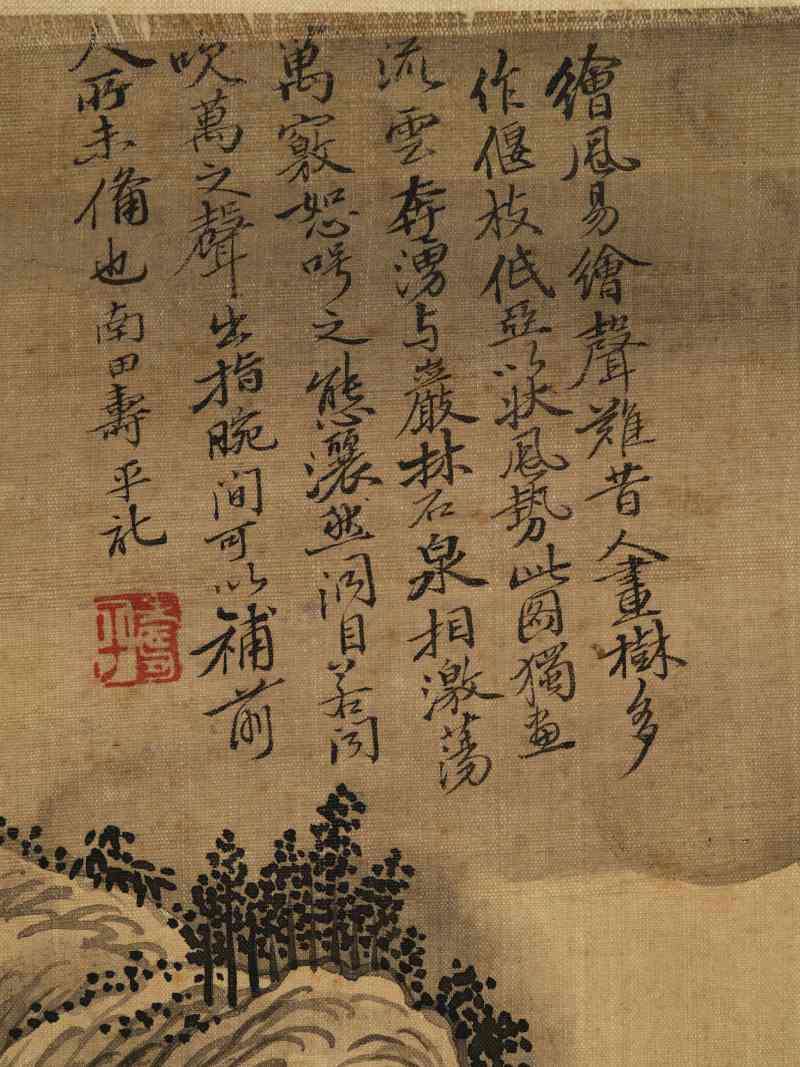 繪風易繪聲難昔人畫樹多
作偃枝低亞以狀風勢此圖獨畫
流雲奔湧与巖林石泉相激蕩
萬竅怒呺之態灑然洞目若聞
吹萬之聲出指腕間可以補前
人所未備也 南田壽平記
壽平